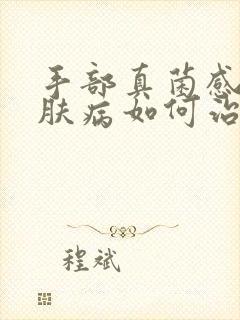 手部真菌感
肤病如何治
程斌